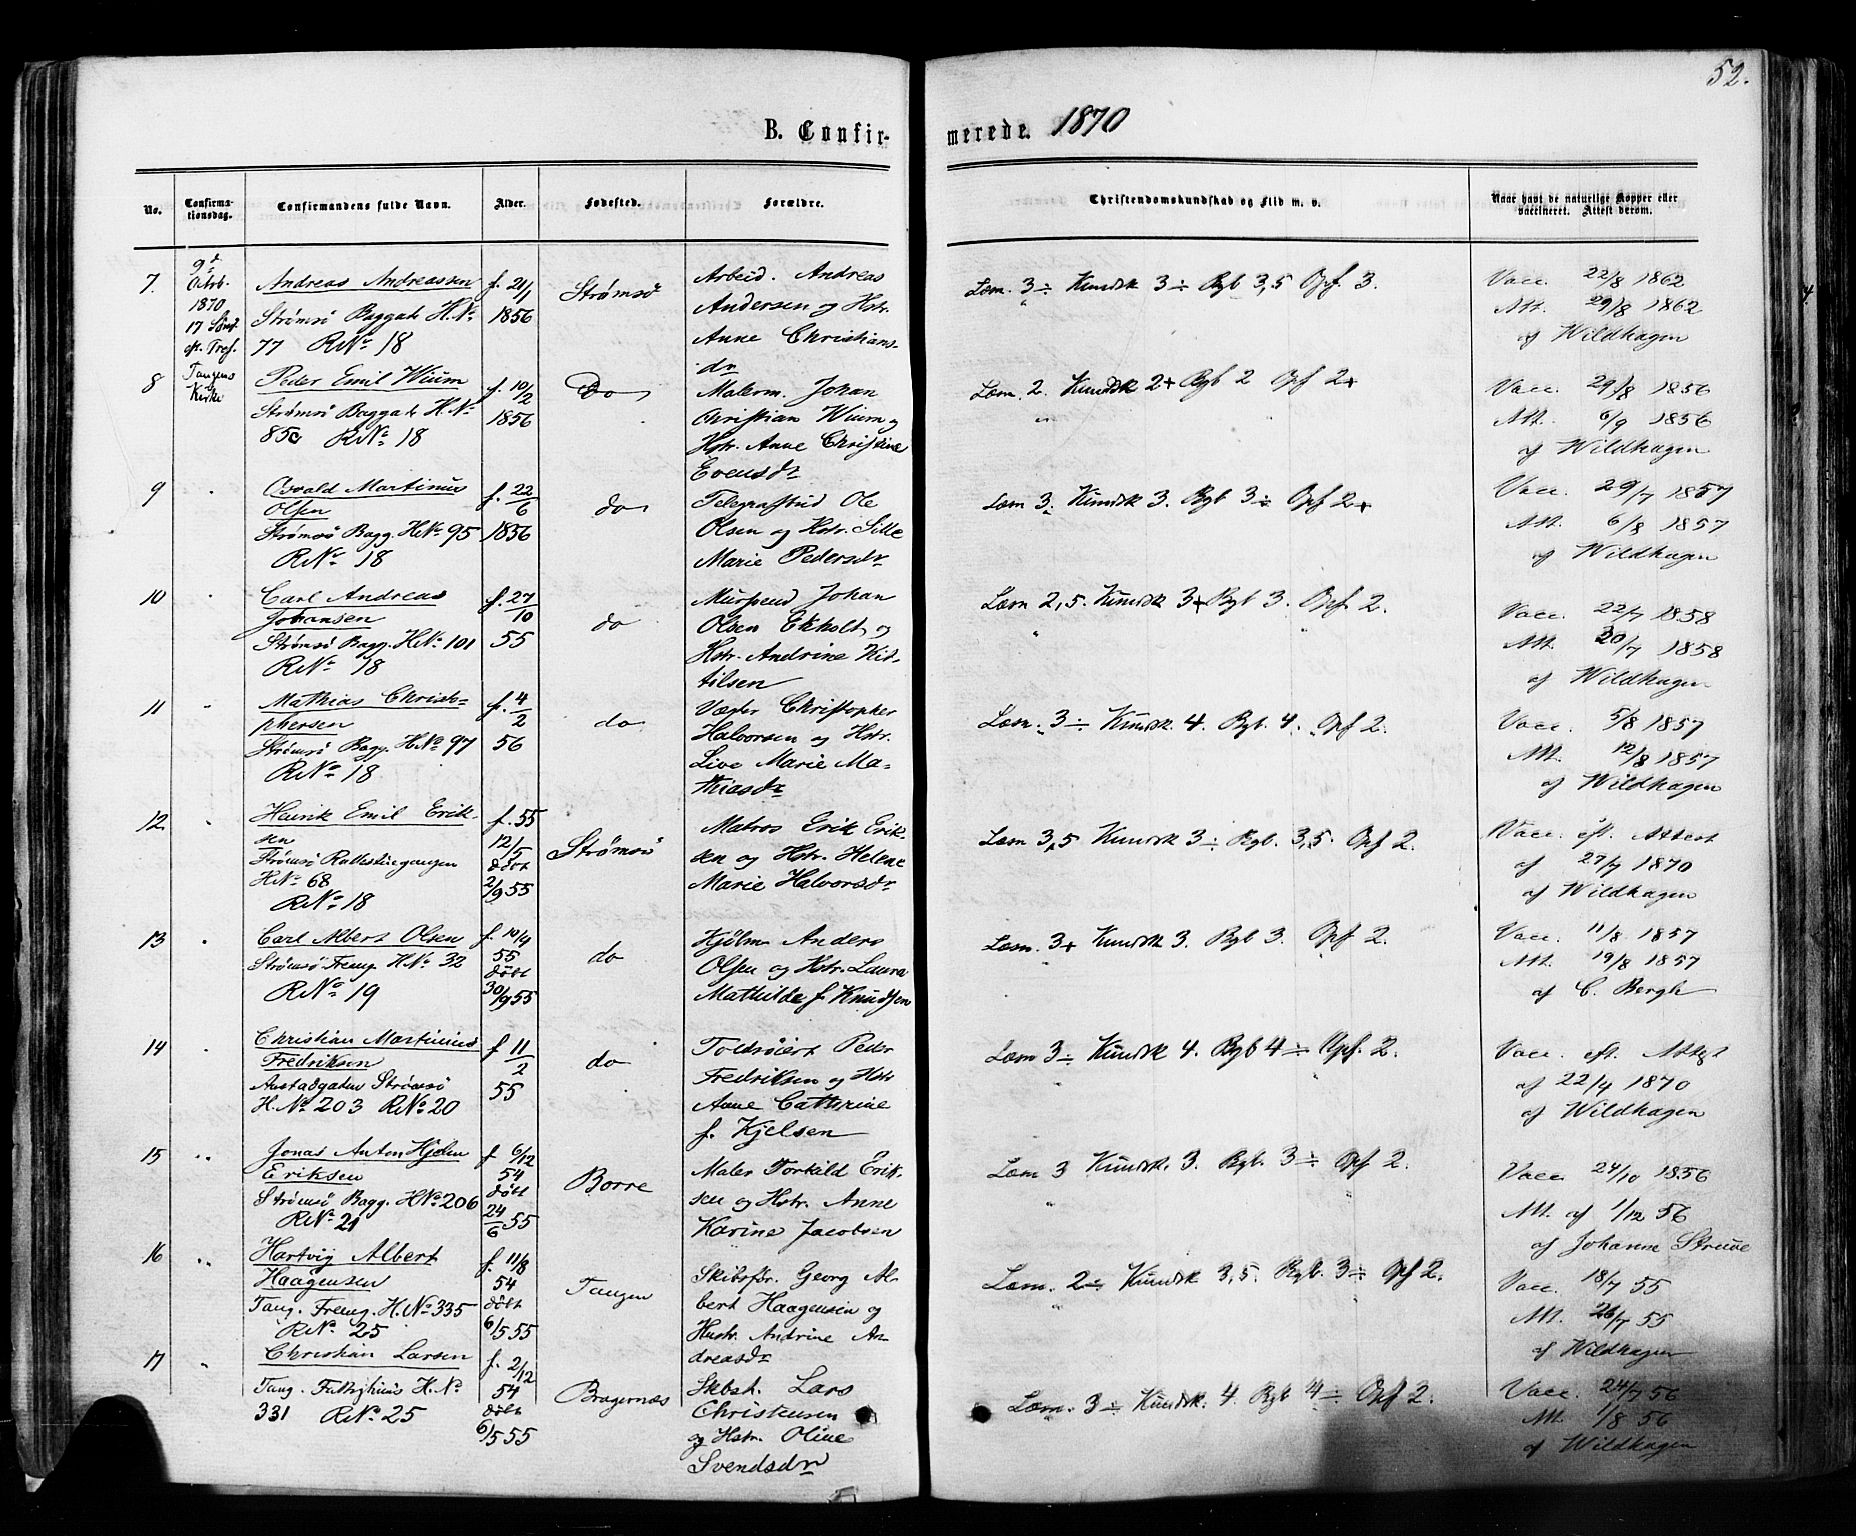 52.
B. Confirmerede. 1870
No.
Confirmationsdag.
Confirmandens fulde Navn.
Alder.
Fødested.
Forældre.
Christendomskundskab og Flid m. v.
Naar havt de naturlige Kopper eller vaccineret. Attest derom.
7.
9d
Octrb.
1870
17 Sønd.
ef. Tref.
Tangens
Kirke
Andreas Andreassen
Strømsö Baggat H.No
77 RNo 18
f. 21/1
1856
Strømsö
Arbeid. Andreas
Andersen og Hstr.
Anne Christians-
dr
Læn. 3÷ Kundsk 3÷ Rgb 3,5 Opf. 3.
Vacc. 22/8 1862
Att. 29/8 1862
af Wildhagen
8
Peder Emil Wium
Strømsö Baggat H.No
85c RNo 18
f. 10/2
1856
Do
Malerm. Johan
Christian Wium og
Hstr. Anne Christine
Evensdr
Læn. 2. Kundsk 2+ Rgb 2 Opf 2+
Vacc. 29/8 1856
Att. 6/9 1856
af Wildhagen
9
Osvald Martinus
Olsen
Strømsö Bagg. HNo 95
RNo 18
f. 22/6
1856
do
Telegrafbud Ole
Olsen og Hstr. Sille
Marie Pedersdr
Læn 3. Kundsk 3. Rgb 3÷ Opf 2+
Vacc. 29/7 1857
Att. 6/8 1857
af Wildhagen
10
Carl Andreas
Johansen
Strømsö Bagg. HNo 101
RNo 18
f. 27/10
55
do
Mursvend Johan
Olsen Ekholt og
Hstr. Andrine Kit-
tilsen
Læn 2,5. Kundsk 3+ Rgb 3. Opf 2.
Vacc. 22/7 1858
Att. 30/7 1858
af Wildhagen
11
Mathias Christo-
phersen
Strømsö Bagg. HNo 97
RNo 18
f. 4/2
56
do
Vægter Christopher
Halvorsen og Hstr.
Live Marie Ma-
thiasdr
Læn. 3÷ Kundsk 4. Rgb. 4. Opf 2.
Vacc. 5/8 1857
Att. 12/8 1857
af Wildhagen
12
Henrik Emil Erik-
sen
Strømsö Rallestuegangen
HNo 68
RNo 18
f. 55
12/5
döbt
2/9 55
Strømsö
Matros Erik Erik-
sen og Hstr. Helene
Marie Halvorsdr
Læn 3,5 Kundsk 3÷ Rgb. 3,5. Opf 2.
Vacc. eft. Attest
af 27/7 1870
af Wildhagen
13
Carl Albert Olsen
Strömsö Freng. HNo 32
RNo 19
f. 10/4
55
döbt
30/9 55
do
Hjölm Anders
Olsen og Hstr. Laura
Mathilde f. Knudsen
Læn. 3+ Kundsk 3. Rgb 3. Opf 2.
Vacc. 11/8 1857
Att. 19/8 1857
af C. Bergh
14
Christian Martinius
Fredriksen
Austadgaten Strömsö
H.No 203 RNo 20
f 11/2
55
do
Toldröiert Peder
Fredriksen og Hstr
Anne Cathrine
f. Kjelsen
Læn 3÷ Kundsk 4. Rgb 4÷ Opf. 2.
Vacc. eft. Attest
af 22/4 1870
af Wildhagen
15
Jonas Anton Hjelm
Eriksen
Strömsö Bagg. HNo 206
RNo 21
f 6/12
54
döbt
24/6 55
Borre
Maler Torkild Erik-
sen og Hstr. Anne
Karine Jacobsen
Læn 3 Kundsk. 3. Rgb. 3÷ Opf 2.
Vacc 24/10 1856
Att. af 1/12 56
af Johanne Streuve
16
Hartvig Albert
Haagensen
Tang. Freng. H.No 335
RNo 25
f. 11/8
54
döbt
6/5 55
Tangen
Skibsför. Georg Al-
bert Haagensen og
Hustr. Andrine An-
dreasdr
Læn. 2÷ Kundsk 3,5. Rgb. 3÷ Opf 2.
Vacc. 18/7 55
Att. 26/7 55
af Wildhagen
17
Christian Larsen
Tang. Fattighuus H.No
331 RNo 25
f. 2/12
54
döbt
6/5 55
Bragernæs
Skbst. Lars
Christensen
og Hstr. Oline
Svendsdr
Læn. 3÷ Kundsk. 4. Rgb 4÷ Opf 2.
Vacc. 24/7 56
Att. 1/8 56
af Wildhagen